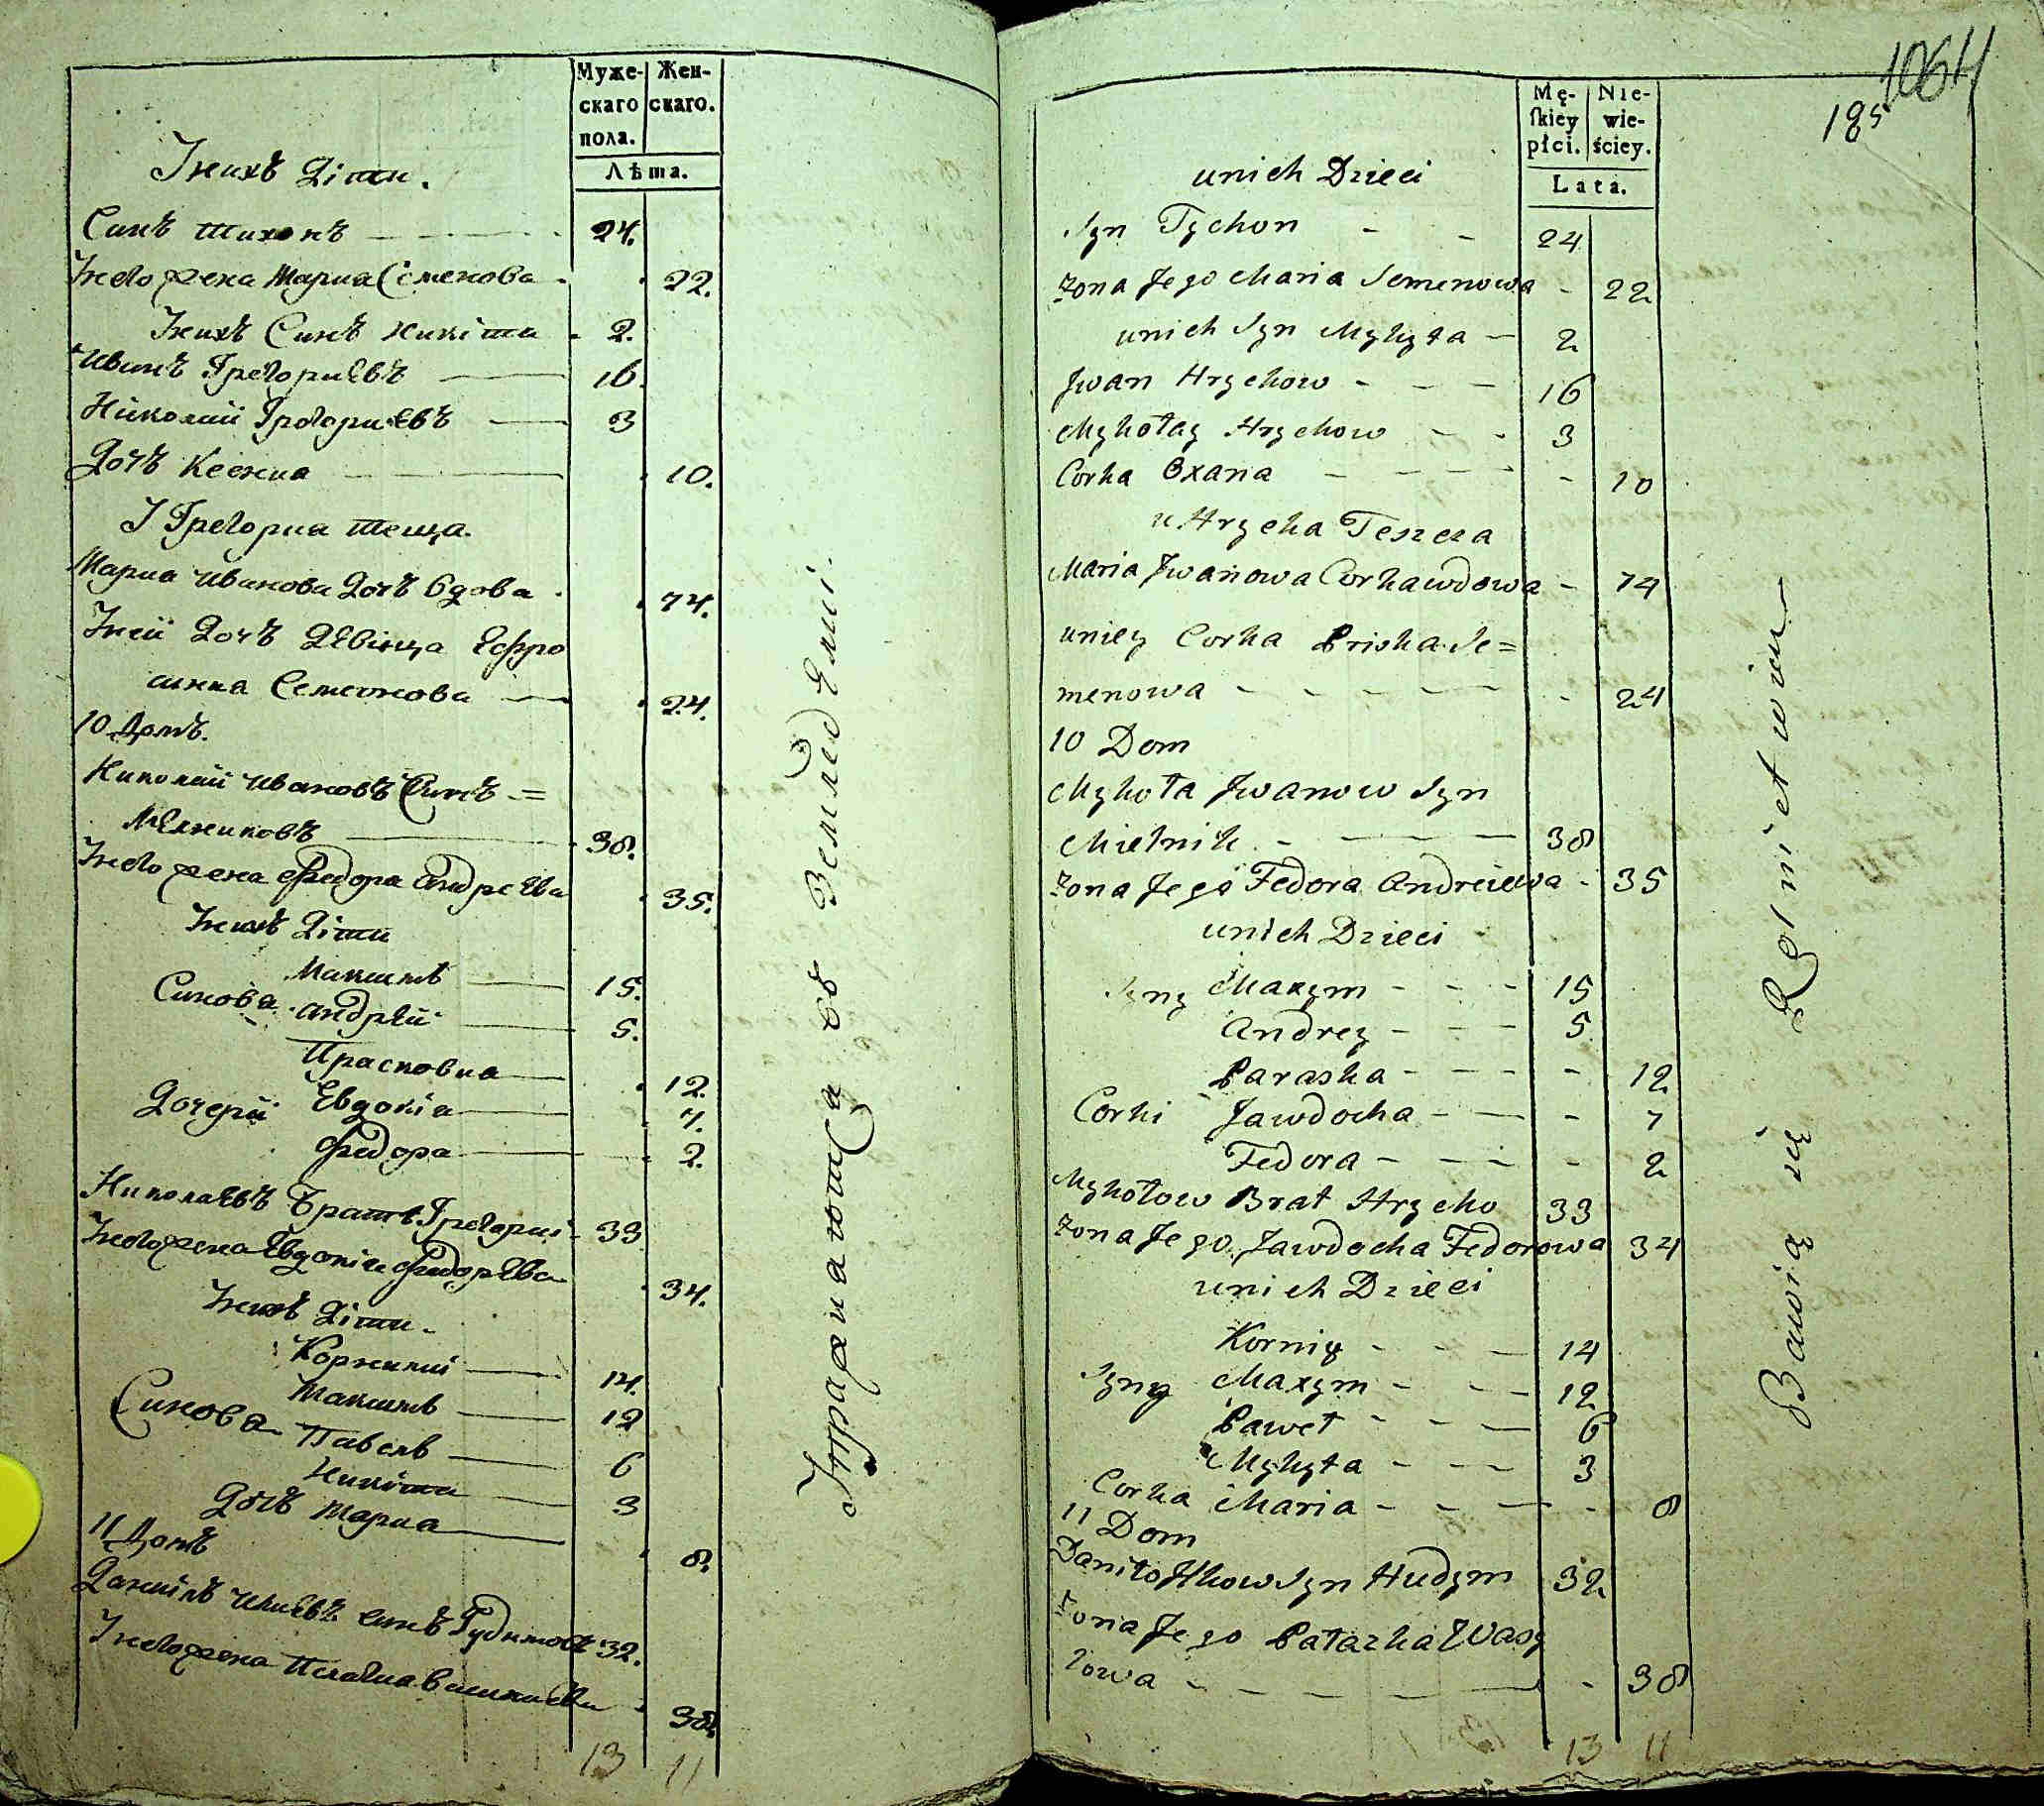 Муже-
скаго
пола.
Жен-
скаго.
Лѣта.
Унихъ Дѣти.
Синъ Тихонъ 24.
Унего жена Мариа Семенова 22.
Унихъ Синъ Никита 2.
Иванъ Григориевъ 16
Николай Григориевъ 3
Дочъ Ксениа 10.
У Григориа теща.
Мариа Иванова Дочъ вдова 74.
Уней Дочъ Девица Ефро
синиа Семенова 24.
10 Домъ.
Николай Ивановъ Синъ =
Мелниковъ 38.
Унего жена Федора Андреева 35.
Унихъ Дѣти
Максимъ 15.
Синова Андрей 5.
Прасковиа 12.
Дочери Евдокіа 7.
Федора 2.
Николаевъ Братъ Григорий 33
Унего жена Евдокіа Федорева 34.
Унихъ Дѣти.
Корнилий 14.
Максимъ 12
Синова Павелъ 6
Никита 3
Дочъ Мариа 8.
11 Домъ
Данилъ Илиевъ синъ Гудимовъ 32.
Унего жена Пелагиа Василиева 38.
13 11
Упражнаются въ Земледелии.
1064
185
Mę-
ſkiey
płci.
Nie-
wie-
ściey.
Lata.
unich Dzieci
Syn Tychon 24
żona Jego Maria Semenowa 22
unich Syn Mykyta 2
Jwan Hryckow 16
Mykołay Hryckow 3
Corka Oxana 10
u Hrycka Teszcza
Maria Jwanowa Corka wdowa 74
uniey Corka Priska Se=
menowa 24
10 Dom
Mykoła Jwanow Syn
Mielnik 38
żona Jego Fedora Andreiewa 35
unich Dzieci
Syny Maxym 15
Andrey 5
Paraska 12
Corki Jawdocha 7
Fedora 2
Mykołow Brat Hrycko 33
żona Jego Jawdocha Fedorowa 34
unich Dzieci
Korniy 14
Syny Maxym 12
Paweł 6
Mykyta 3
Corka Maria 8
11 Dom
Daniło Jlkow Syn Hudym 32
żona Jego Patazka Wasy
lowa 38
13 11
Bawią się Rolnictwem